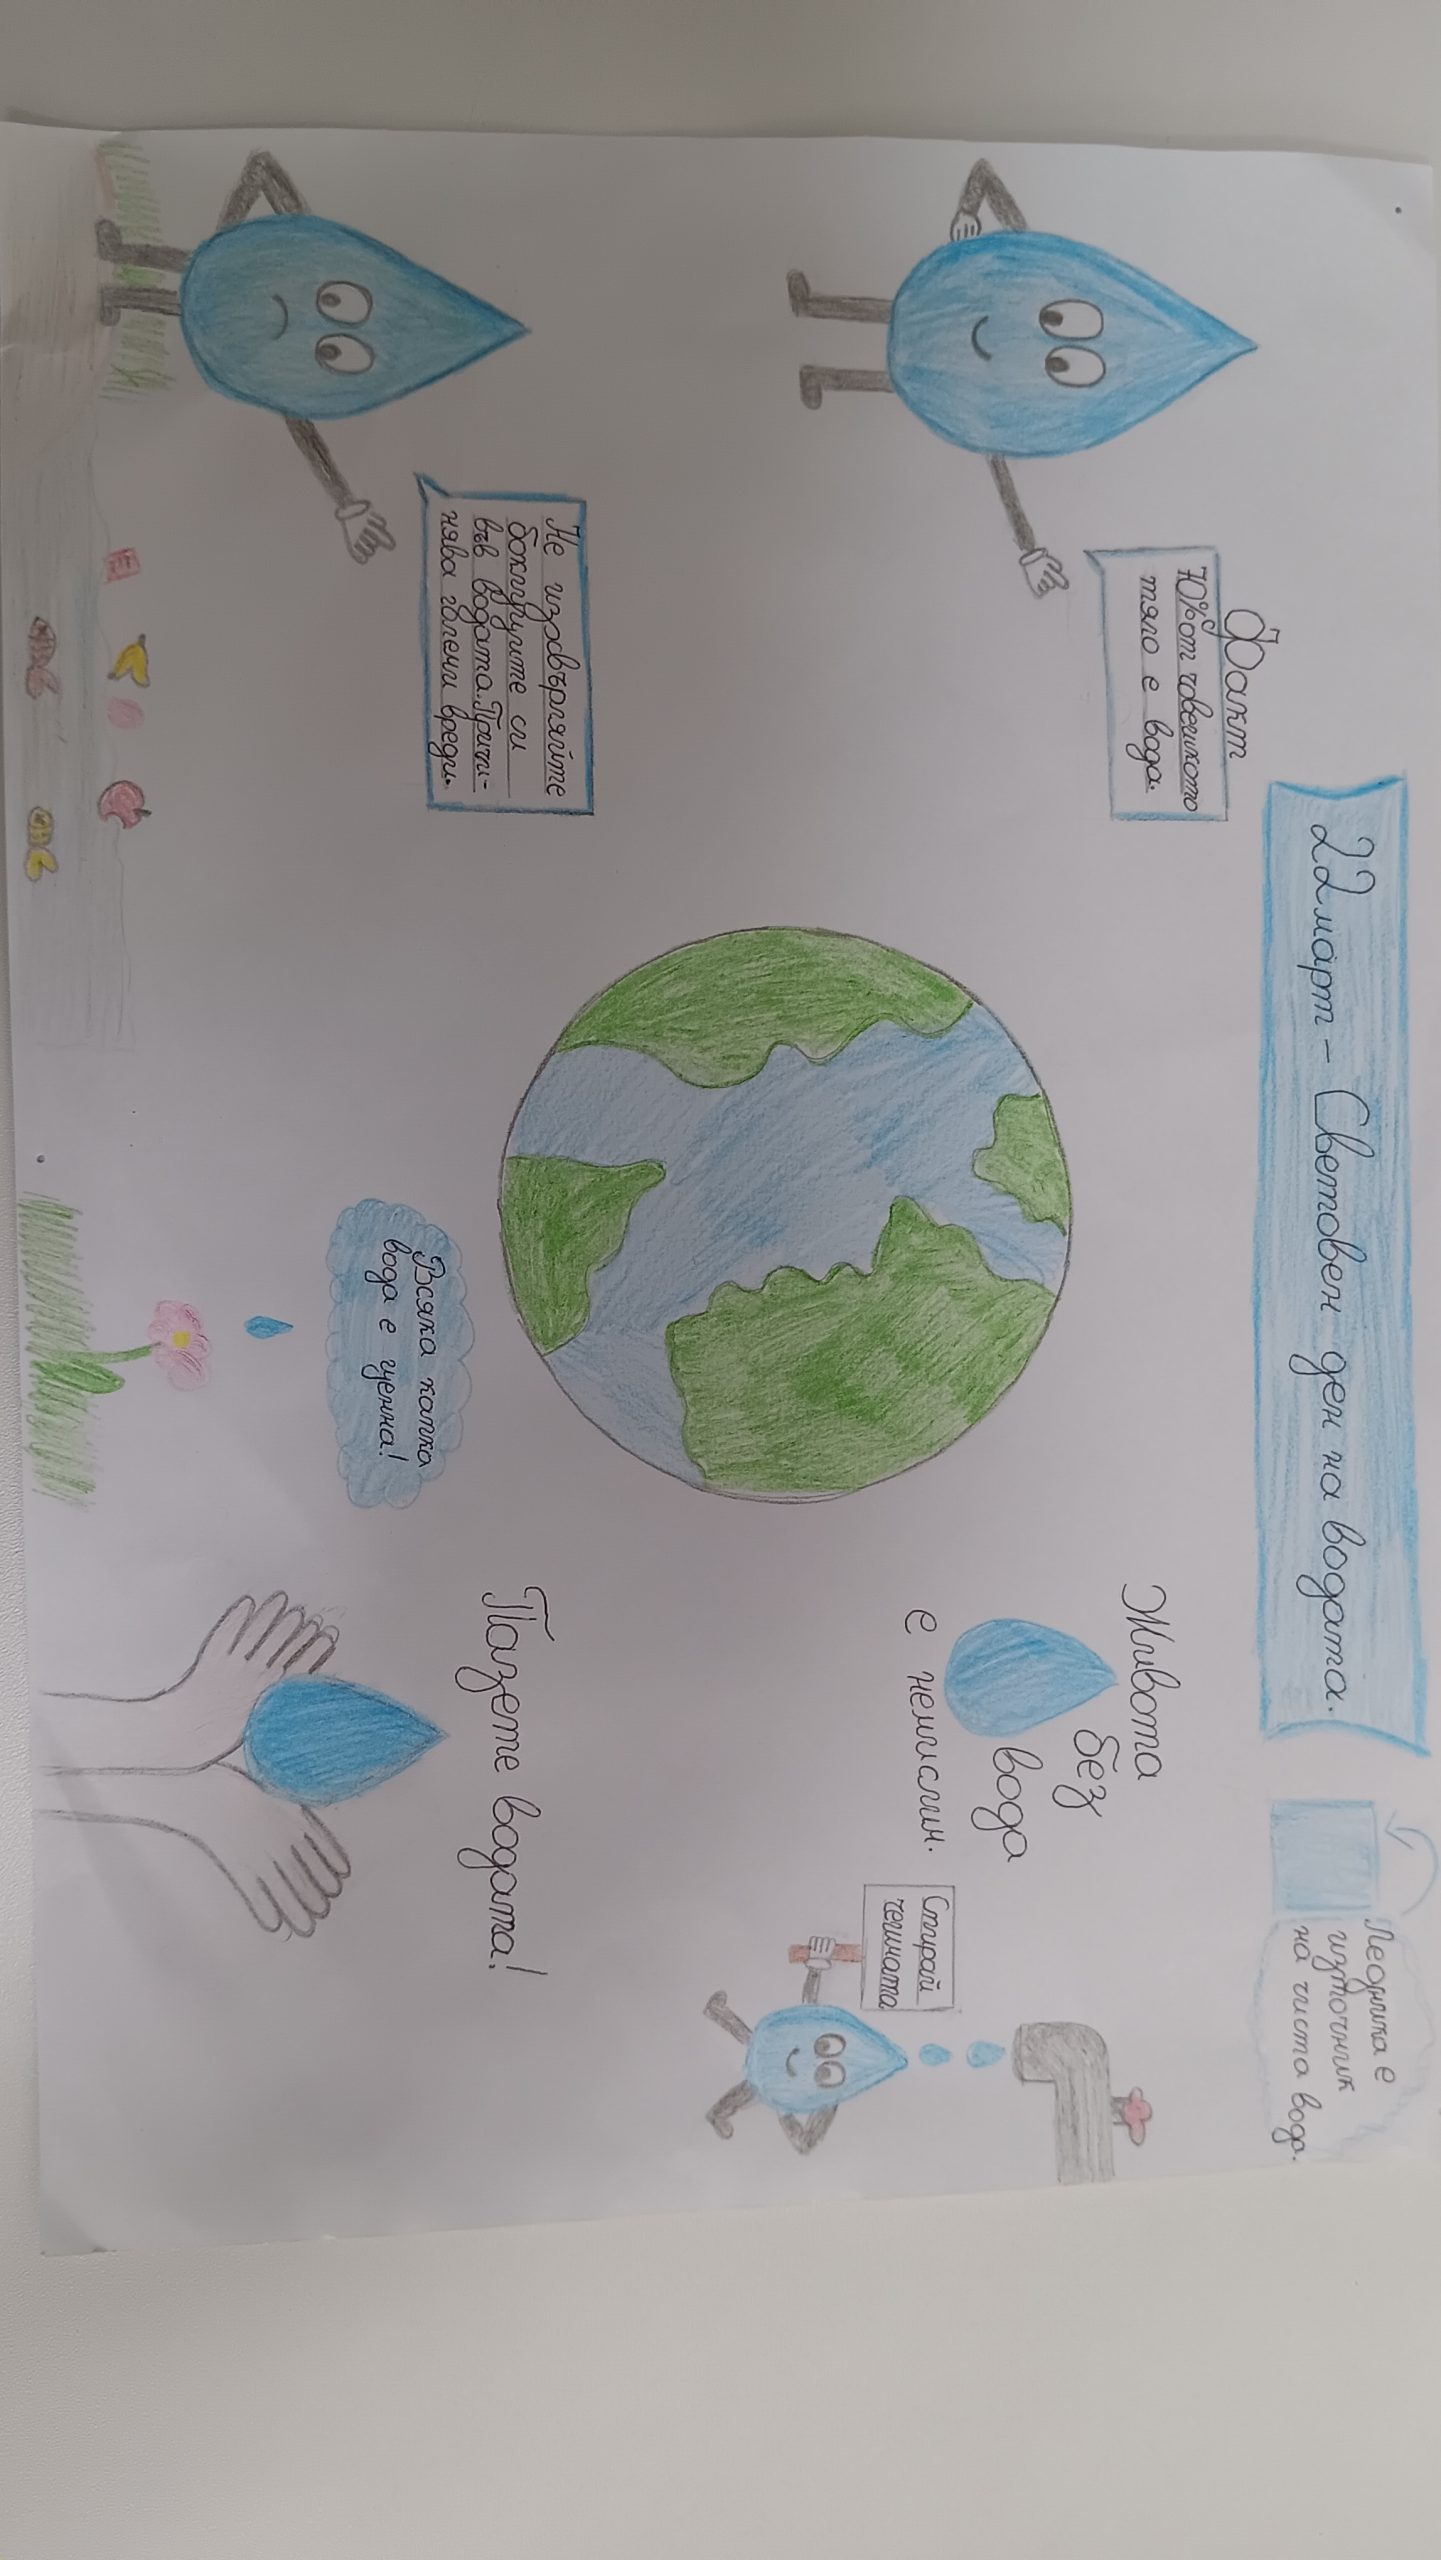 22 март - Световен ден на водата.
Ледника е
източник
на чиста вода.
Факт
70% от човешкото
тяло е вода.
Живота
без
вода
е немислим.
Спирай
чешмата
Не изхвърляйте
боклуците си
във водата. Причи-
нява големи вреди.
Всяка капка
вода е ценна!
Пазете водата!